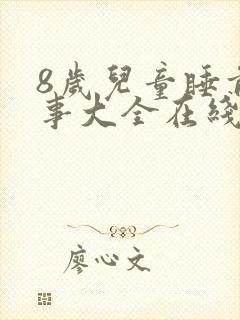 8歲兒童睡前
事大全在綫
廖心文